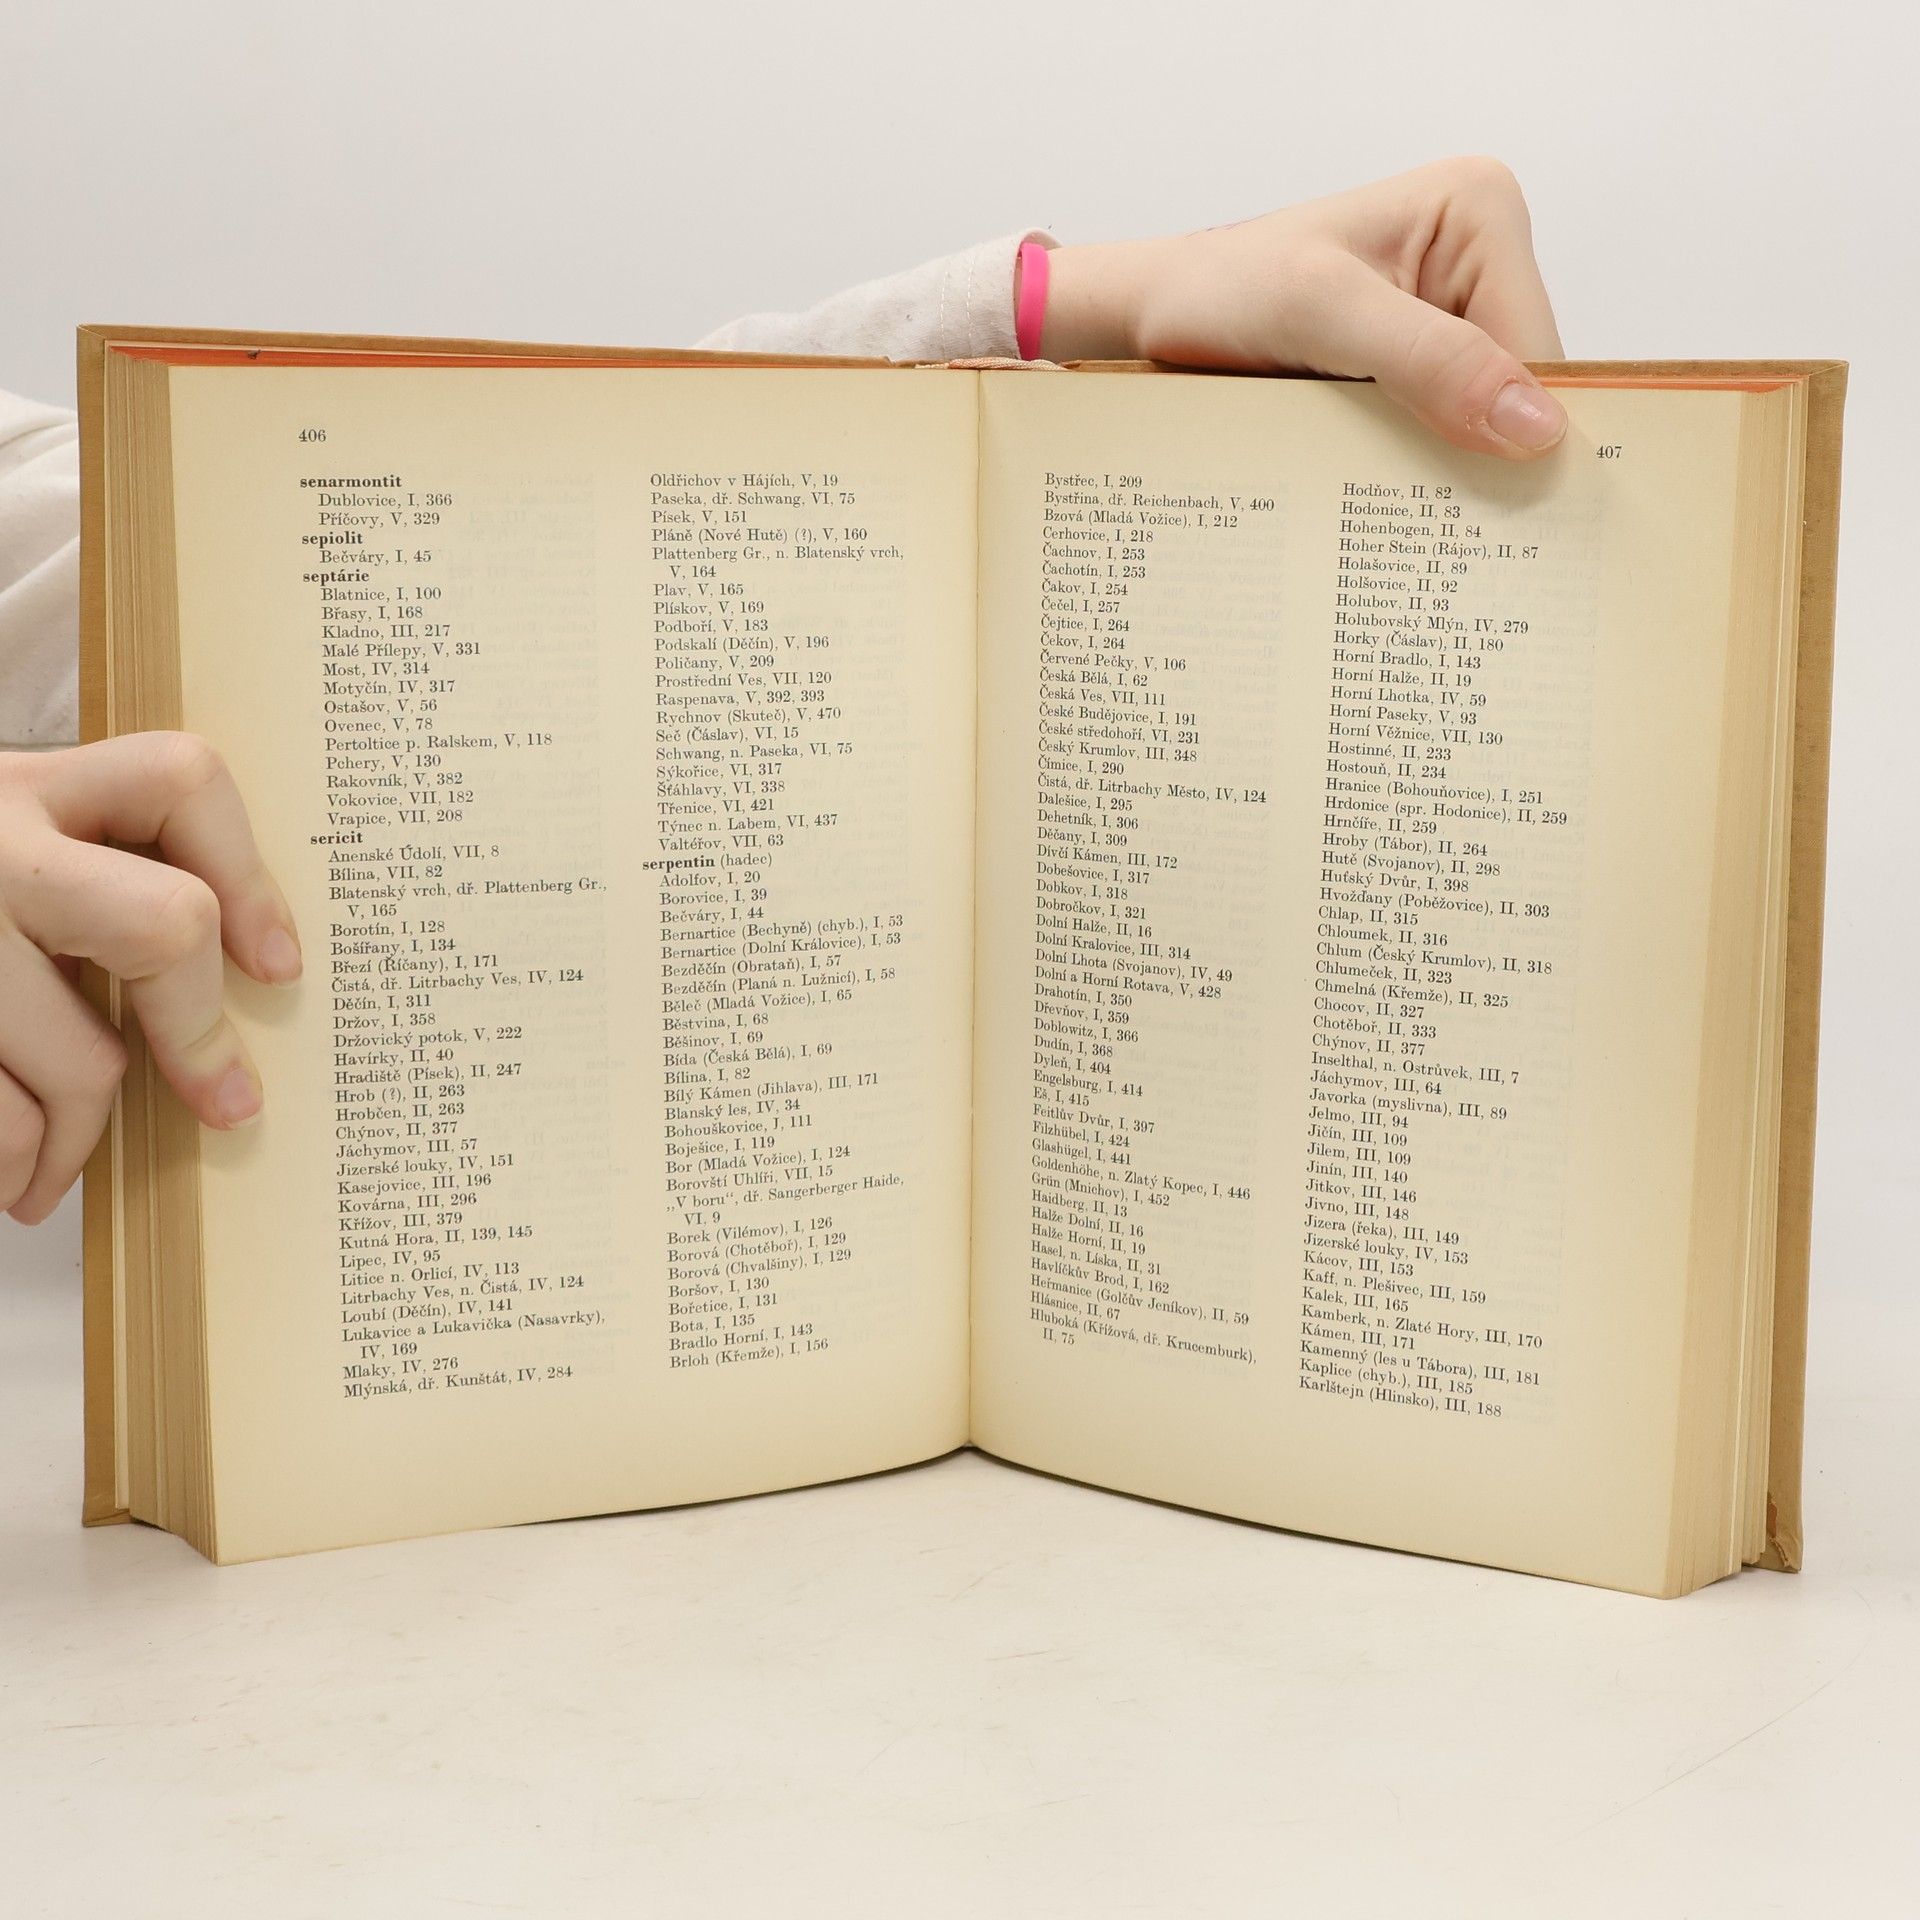 406
senarmontit
Dublovice, I, 366
Příčovy, V, 329
sepiolit
Bečváry, I, 45
septárie
Blatnice, I, 100
Břasy, I, 168
Kladno, III, 217
Malé Přílepy, V, 331
Most, IV, 314
Motyčín, IV, 317
Ostašov, V, 56
Ovenec, V, 78
Pertoltice p. Ralskem, V, 118
Pchery, V, 130
Rakovník, V, 382
Vokovice, VII, 182
Vrapice, VII, 208
sericit
Anenské Údolí, VII, 8
Bílina, VII, 82
Blatenský vrch, dř. Plattenberg Gr.,
V, 165
Borotín, I, 128
Bošířany, I, 134
Březí (Říčany), I, 171
Čistá, dř. Litrbachy Ves, IV, 124
Děčín, I, 311
Držov, I, 358
Držovický potok, V, 222
Havírky, II, 40
Hradiště (Písek), II, 247
Hrob (?), II, 263
Hrobčen, II, 263
Chýnov, II, 377
Jáchymov, III, 57
Jizerské louky, IV, 151
Kasejovice, III, 196
Kovárna, III, 296
Křížov, III, 379
Kutná Hora, II, 139, 145
Lipec, IV, 95
Litice n. Orlicí, IV, 113
Litrbachy Ves, n. Čistá, IV, 124
Loubí (Děčín), IV, 141
Lukavice a Lukavička (Nasavrky),
IV, 169
Mlaky, IV, 276
Mlýnská, dř. Kunštát, IV, 284
Oldřichov v Hájích, V, 19
Paseka, dř. Schwang, VI, 75
Písek, V, 151
Pláně (Nové Hutě) (?), V, 160
Plattenberg Gr., n. Blatenský vrch,
V, 164
Plav, V, 165
Plískov, V, 169
Podboří, V, 183
Podskalí (Děčín), V, 196
Poličany, V, 209
Prostřední Ves, VII, 120
Raspenava, V, 392, 393
Rychnov (Skuteč), V, 470
Seč (Čáslav), VI, 15
Schwang, n. Paseka, VI, 75
Sýkořice, VI, 317
Šťáhlavy, VI, 338
Třenice, VI, 421
Týnec n. Labem, VI, 437
Valtéřov, VII, 63
serpentin (hadec)
Adolfov, I, 20
Borovice, I, 39
Bečváry, I, 44
Bernartice (Bechyně) (chyb.), I, 53
Bernartice (Dolní Královice), I, 53
Bezděčín (Obrataň), I, 57
Bezděčín (Planá n. Lužnicí), I, 58
Běleč (Mladá Vožice), I, 65
Běstvina, I, 68
Běšinov, I, 69
Bída (Česká Bělá), I, 69
Bílina, I, 82
Bílý Kámen (Jihlava), III, 171
Blanský les, IV, 34
Bohouškovice, I, 111
Boješice, I, 119
Bor (Mladá Vožice), I, 124
Borovští Uhlíři, VII, 15
„V boru“, dř. Sangerberger Haide,
VI, 9
Borek (Vilémov), I, 126
Borová (Chotěboř), I, 129
Borová (Chvalšiny), I, 129
Boršov, I, 130
Bořetice, I, 131
Bota, I, 135
Bradlo Horní, I, 143
Brloh (Křemže), I, 156
407
Bystřec, I, 209
Bystřina, dř. Reichenbach, V, 400
Bzová (Mladá Vožice), I, 212
Cerhovice, I, 218
Čachnov, I, 253
Čachotín, I, 253
Čakov, I, 254
Čečel, I, 257
Čejtice, I, 264
Čekov, I, 264
Červené Pečky, V, 106
Česká Bělá, I, 62
Česká Ves, VII, 111
České Budějovice, I, 191
České středohoří, VI, 231
Český Krumlov, III, 348
Čímice, I, 290
Čistá, dř. Litrbachy Město, IV, 124
Dalešice, I, 295
Dehetník, I, 306
Děčany, I, 309
Dívčí Kámen, III, 172
Dobešovice, I, 317
Dobkov, I, 318
Dobročkov, I, 321
Dolní Halže, II, 16
Dolní Kralovice, III, 314
Dolní Lhota (Svojanov), IV, 49
Dolní a Horní Rotava, V, 428
Drahotín, I, 350
Dřevňov, I, 359
Doblowitz, I, 366
Dudín, I, 368
Dyleň, I, 404
Engelsburg, I, 414
Eš, I, 415
Feitlův Dvůr, I, 397
Filzhübel, I, 424
Glashügel, I, 441
Goldenhöhe, n. Zlatý Kopec, I, 446
Grün (Mnichov), I, 452
Haidberg, II, 13
Halže Dolní, II, 16
Halže Horní, II, 19
Hasel, n. Líska, II, 31
Havlíčkův Brod, I, 162
Heřmanice (Golčův Jeníkov), II, 59
Hlásnice, II, 67
Hluboká (Křížová, dř. Krucemburk),
II, 75
Hodňov, II, 82
Hodonice, II, 83
Hohenbogen, II, 84
Hoher Stein (Rájov), II, 87
Holašovice, II, 89
Holšovice, II, 92
Holubov, II, 93
Holubovský Mlýn, IV, 279
Horky (Čáslav), II, 180
Horní Bradlo, I, 143
Horní Halže, II, 19
Horní Lhotka, IV, 59
Horní Paseky, V, 93
Horní Věžnice, VII, 130
Hostinné, II, 233
Hostouň, II, 234
Hranice (Bohouňovice), I, 251
Hrdonice (spr. Hodonice), II, 259
Hrnčíře, II, 259
Hroby (Tábor), II, 264
Hutě (Svojanov), II, 298
Huťský Dvůr, I, 398
Hvožďany (Poběžovice), II, 303
Chlap, II, 315
Chloumek, II, 316
Chlum (Český Krumlov), II, 318
Chlumeček, II, 323
Chmelná (Křemže), II, 325
Chocov, II, 327
Chotěboř, II, 333
Chýnov, II, 377
Inselthal, n. Ostrůvek, III, 7
Jáchymov, III, 64
Javorka (myslivna), III, 89
Jelmo, III, 94
Jičín, III, 109
Jilem, III, 109
Jinín, III, 140
Jitkov, III, 146
Jivno, III, 148
Jizera (řeka), III, 149
Jizerské louky, IV, 153
Kácov, III, 153
Kaff, n. Plešivec, III, 159
Kalek, III, 165
Kamberk, n. Zlaté Hory, III, 170
Kámen, III, 171
Kamenný (les u Tábora), III, 181
Kaplice (chyb.), III, 185
Karlštejn (Hlinsko), III, 188